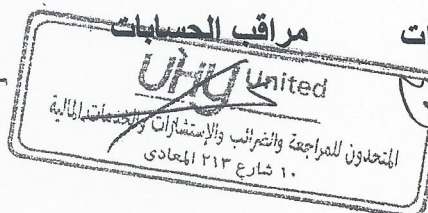 مراقب الحسابات
ات
UHY United
المتحدون للمراجعة والضرائب والإستشارات والخدمات المالية
١٠ شارع ٢١٣ المعادى